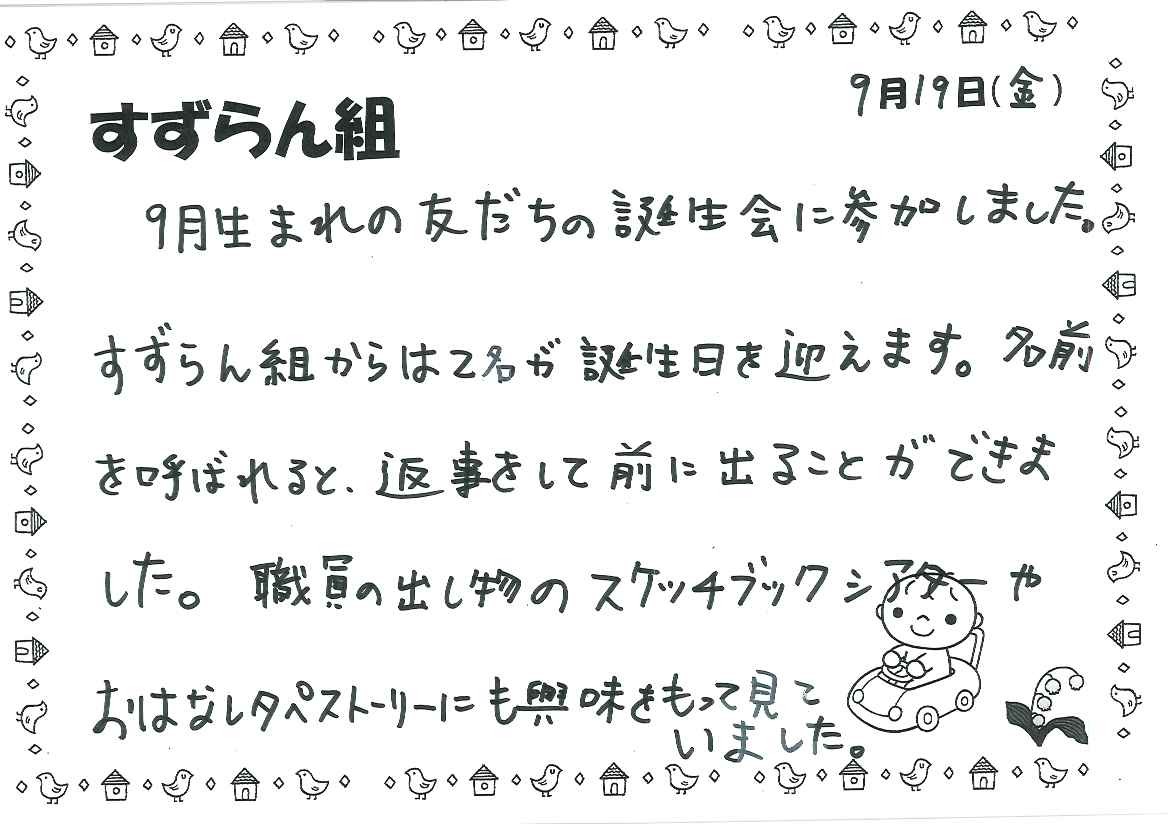 9月19日(金)
すずらん組
9月生まれの友だちの誕生会に参加しました。
すずらん組からは2名が誕生日を迎えます。名前
を呼ばれると、返事をして前に出ることができま
した。職員の出し物のスケッチブックシアターや
おはなしタペストーリーにも興味をもって見て
いました。